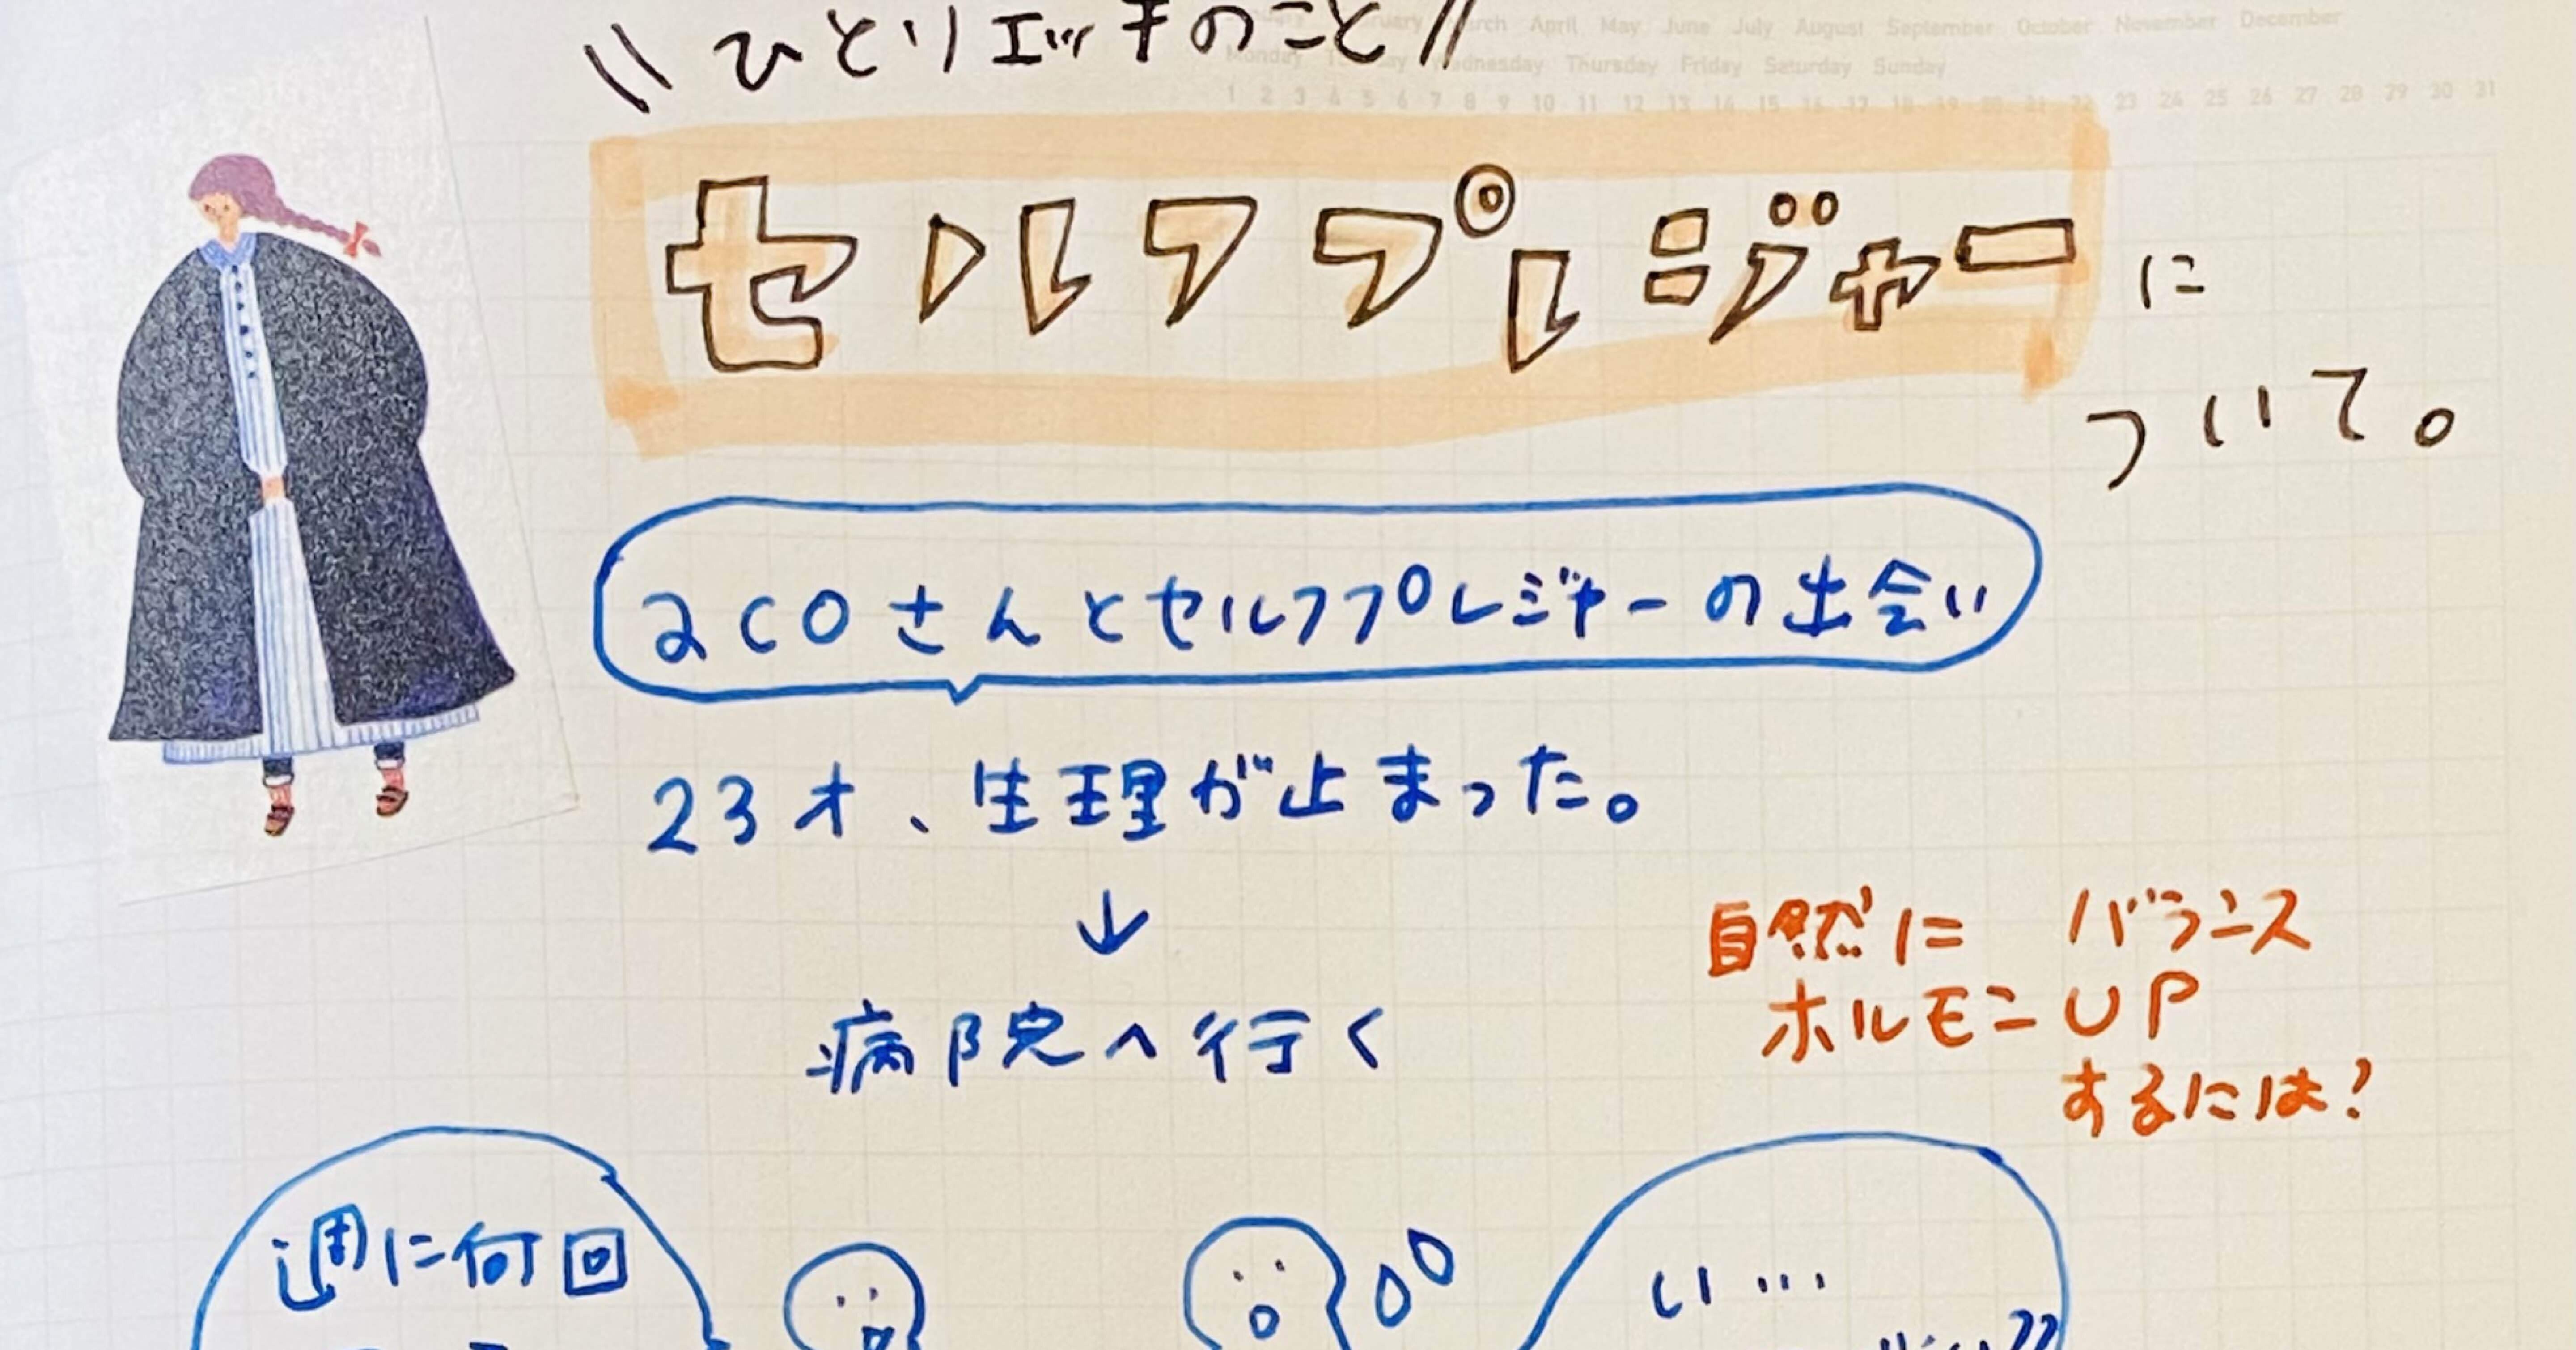 \\ ひとりエッチのこと //
March April May June July August September October November December
Monday Wednesday Thursday Friday Saturday Sunday
1 2 3 4 5 6 7 8 9 10 11 12 13 14 15 16 17 18 19 20 21 22 23 24 25 26 27 28 29 30 31
セルフプレジャーに
ついて。
acoさんとセルフプレジャーの出会い
23才、生理が止まった。
↓
病院へ行く
自然に バランス
ホルモン UP
するには?
週に何回
い…